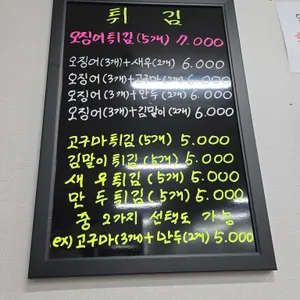 튀김
오징어튀김(5개) 7.000
오징어(3개)+새우(2개) 6.000
오징어(3개)+고구마(2개) 6.000
오징어(3개)+만두(2개) 6.000
오징어(3개)+김말이(2개) 6.000
고구마튀김(5개) 5.000
김말이튀김(5개) 5.000
새우튀김(5개) 5.000
만두튀김(5개) 5.000
중 2가지 선택도 가능
ex) 고구마(3개)+만두(2개) 5.000